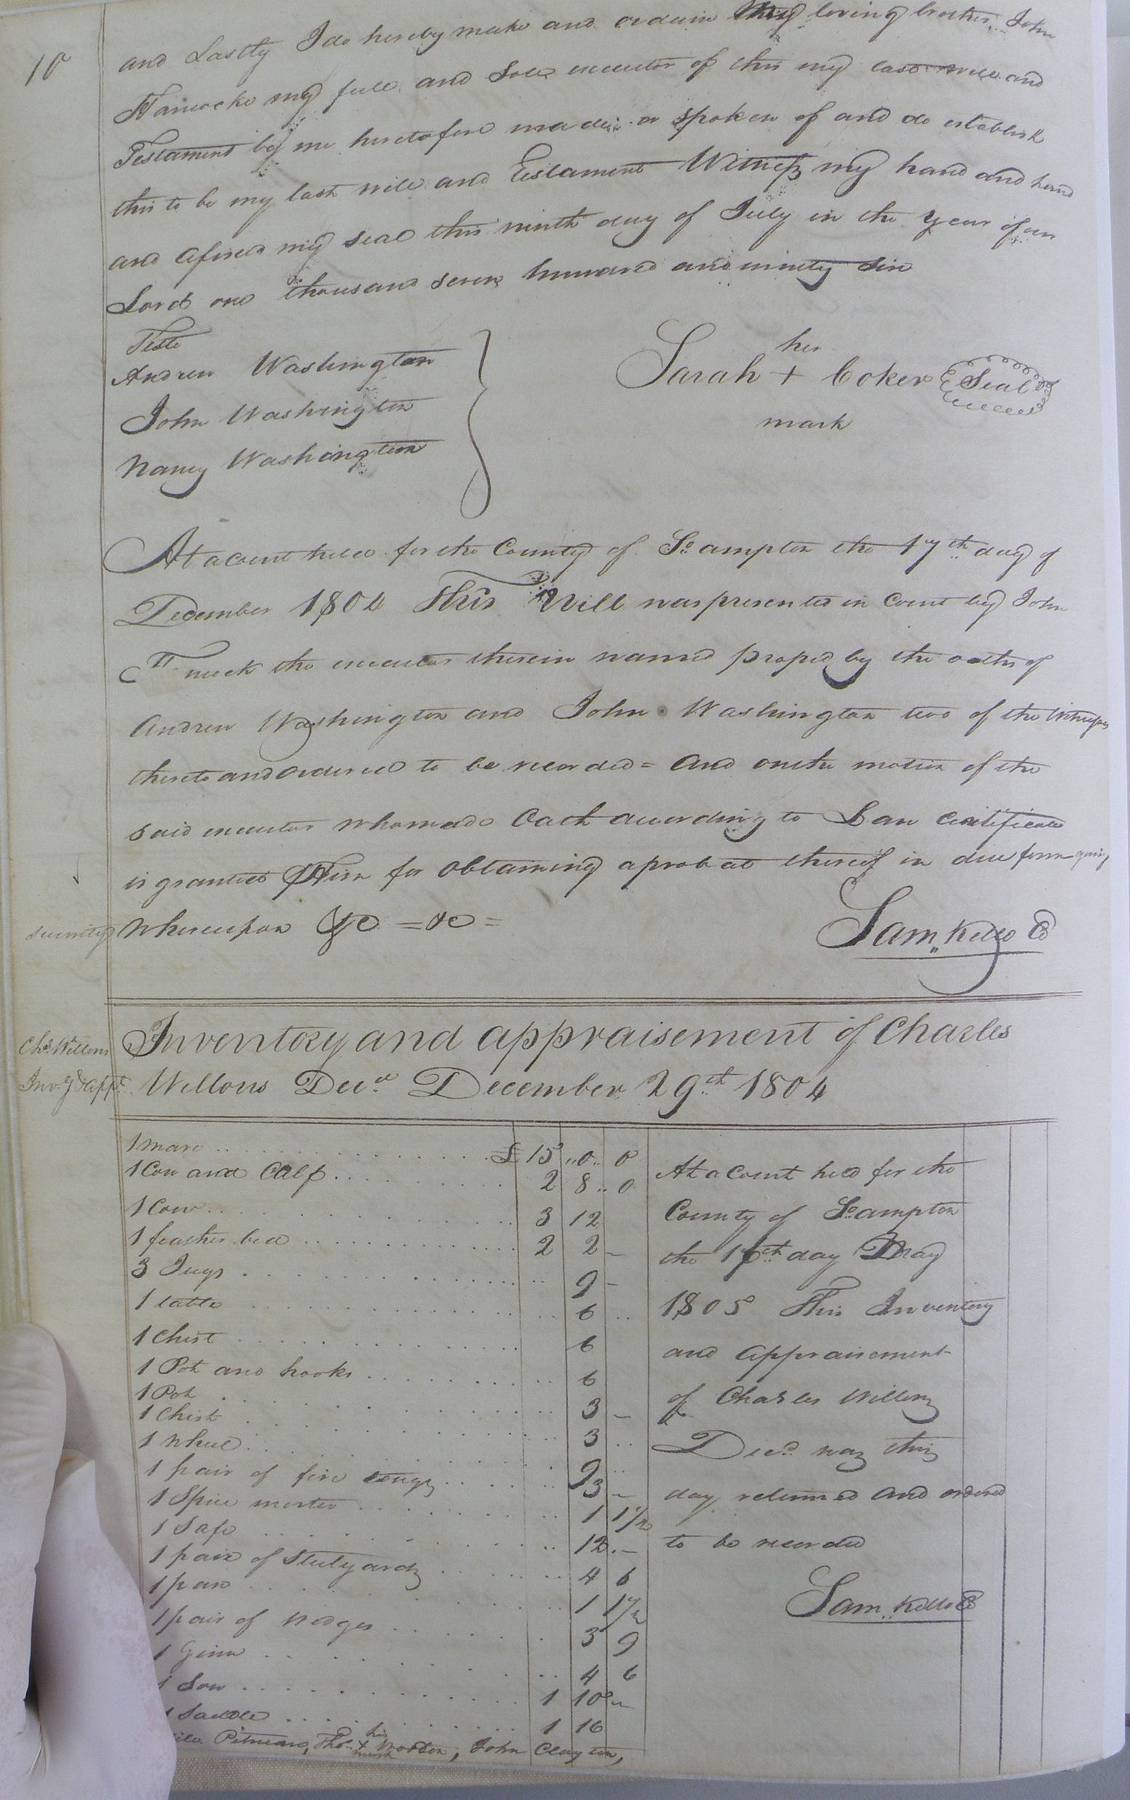 10
and Lastly I do hereby make and ordain my loving brother John
my full and Sole executor of this my last will and
Testament by me heretofore made or spoken of and do establish
this to be my last will and Testament Witness my hand and
and afixed my seal this ninth day of July in the year of our
Lord one thousand seven hundred and ninety six
Teste
Andrew Washington
John Washington
Nancy Washington
her
Sarah + Coker Seal
mark
At a court held for the County of So.ampton the 17th day of
December 1804 This Will was presented in Court by John
the executor therein named proped by the oaths of
Andrew Washington and John Washington two of the Witnesses
thereto and ordered to be recorded = And on the motion of the
said executor who made Oath according to Law Certificate
is granted Him for obtaining a probat thereof in due form giving
security whereupon &c = &c =
Sam. Kello C
Chs. Wellons
Inv.y & appt.
Inventory and appraisement of Charles
Wellons Decd December 29th 1804
1 mare £ 15 .. 0 .. 0
1 Cow and Calf 2 8 .. 0
1 Cow 3 12
1 feather bed 2 2 -
3 Jugs 9 -
1 table 6 ..
1 Chest 6
1 Pot and hooks 6
1 Pot 3 -
1 Chest 3 ..
1 Wheel 9 ..
1 pair of fire tongs 3 -
1 Spice morter 1 1 1/2
1 Safe 12 . -
1 pair of Stilyards 4 6
1 pan 1 1 1/2
1 pair of Wedges 3 9
1 4 6
1 Sow 1 10 -
1 Saddle 1 16
Pitman, Thos. his x mark Wooten, John Clayton,
At a Court held for the
County of So.ampton
the day May
1805 This Inventory
and Appraisement
of Charles Wellons
Decd. was this
day returned and ordered
to be recorded
Sam. Kello C